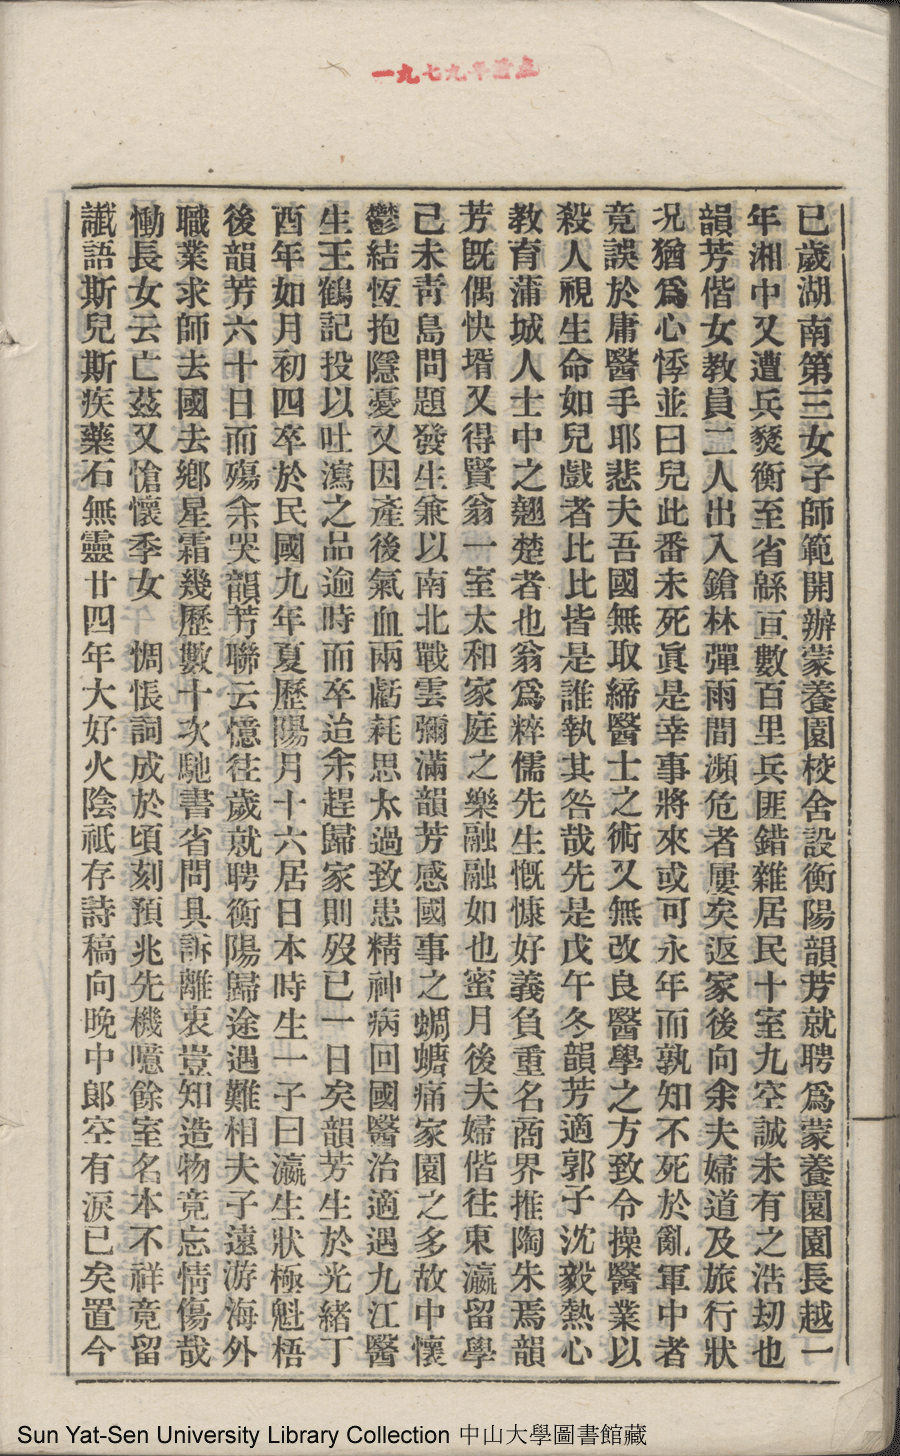 一九七九年查点
已歲湖南第三女子師範開辦蒙養園校舍設衡陽韻芳就聘爲蒙養園園長越一
年湘中又遭兵燹衡至省緜亘數百里兵匪錯雜居民十室九空誠未有之浩刧也
韻芳偕女教員二人出入鎗林彈雨間瀕危者屢矣返家後向余夫婦道及旅行狀
况猶爲心悸並曰兒此番未死眞是幸事將來或可永年而孰知不死於亂軍中者
竟誤於庸醫手耶悲夫吾國無取締醫士之術又無改良醫學之方致令操醫業以
殺人視生命如兒戲者比比皆是誰執其咎哉先是戊午冬韻芳適郭子沈毅熱心
教育蒲城人士中之翹楚者也翁爲粹儒先生慨慷好義負重名商界推陶朱焉韻
芳旣偶快壻又得賢翁一室太和家庭之樂融融如也蜜月後夫婦偕往東瀛留學
己未靑島問題發生兼以南北戰雲彌滿韻芳感國事之蜩螗痛家園之多故中懷
鬱結恆抱隱憂又因產後氣血兩虧耗思太過致患精神病回國醫治適遇九江醫
生王鶴記投以吐瀉之品逾時而卒迨余趕歸家則歿已一日矣韻芳生於光緒丁
酉年如月初四卒於民國九年夏歷陽月十六居日本時生一子曰瀛生狀極魁梧
後韻芳六十日而殤余哭韻芳聯云憶往歲就聘衡陽歸途遇難相夫子遠游海外
職業求師去國去鄕星霜幾歷數十次馳書省問具訴離衷豈知造物竟忘情傷哉
慟長女云亡茲又愴懷季女 惆悵詞成於頃刻預兆先機噫餘室名本不祥竟留
讖語斯兒斯疾藥石無靈廿四年大好火陰祗存詩稿向晚中郞空有淚已矣置今
Sun Yat-Sen University Library Collection 中山大學圖書館藏